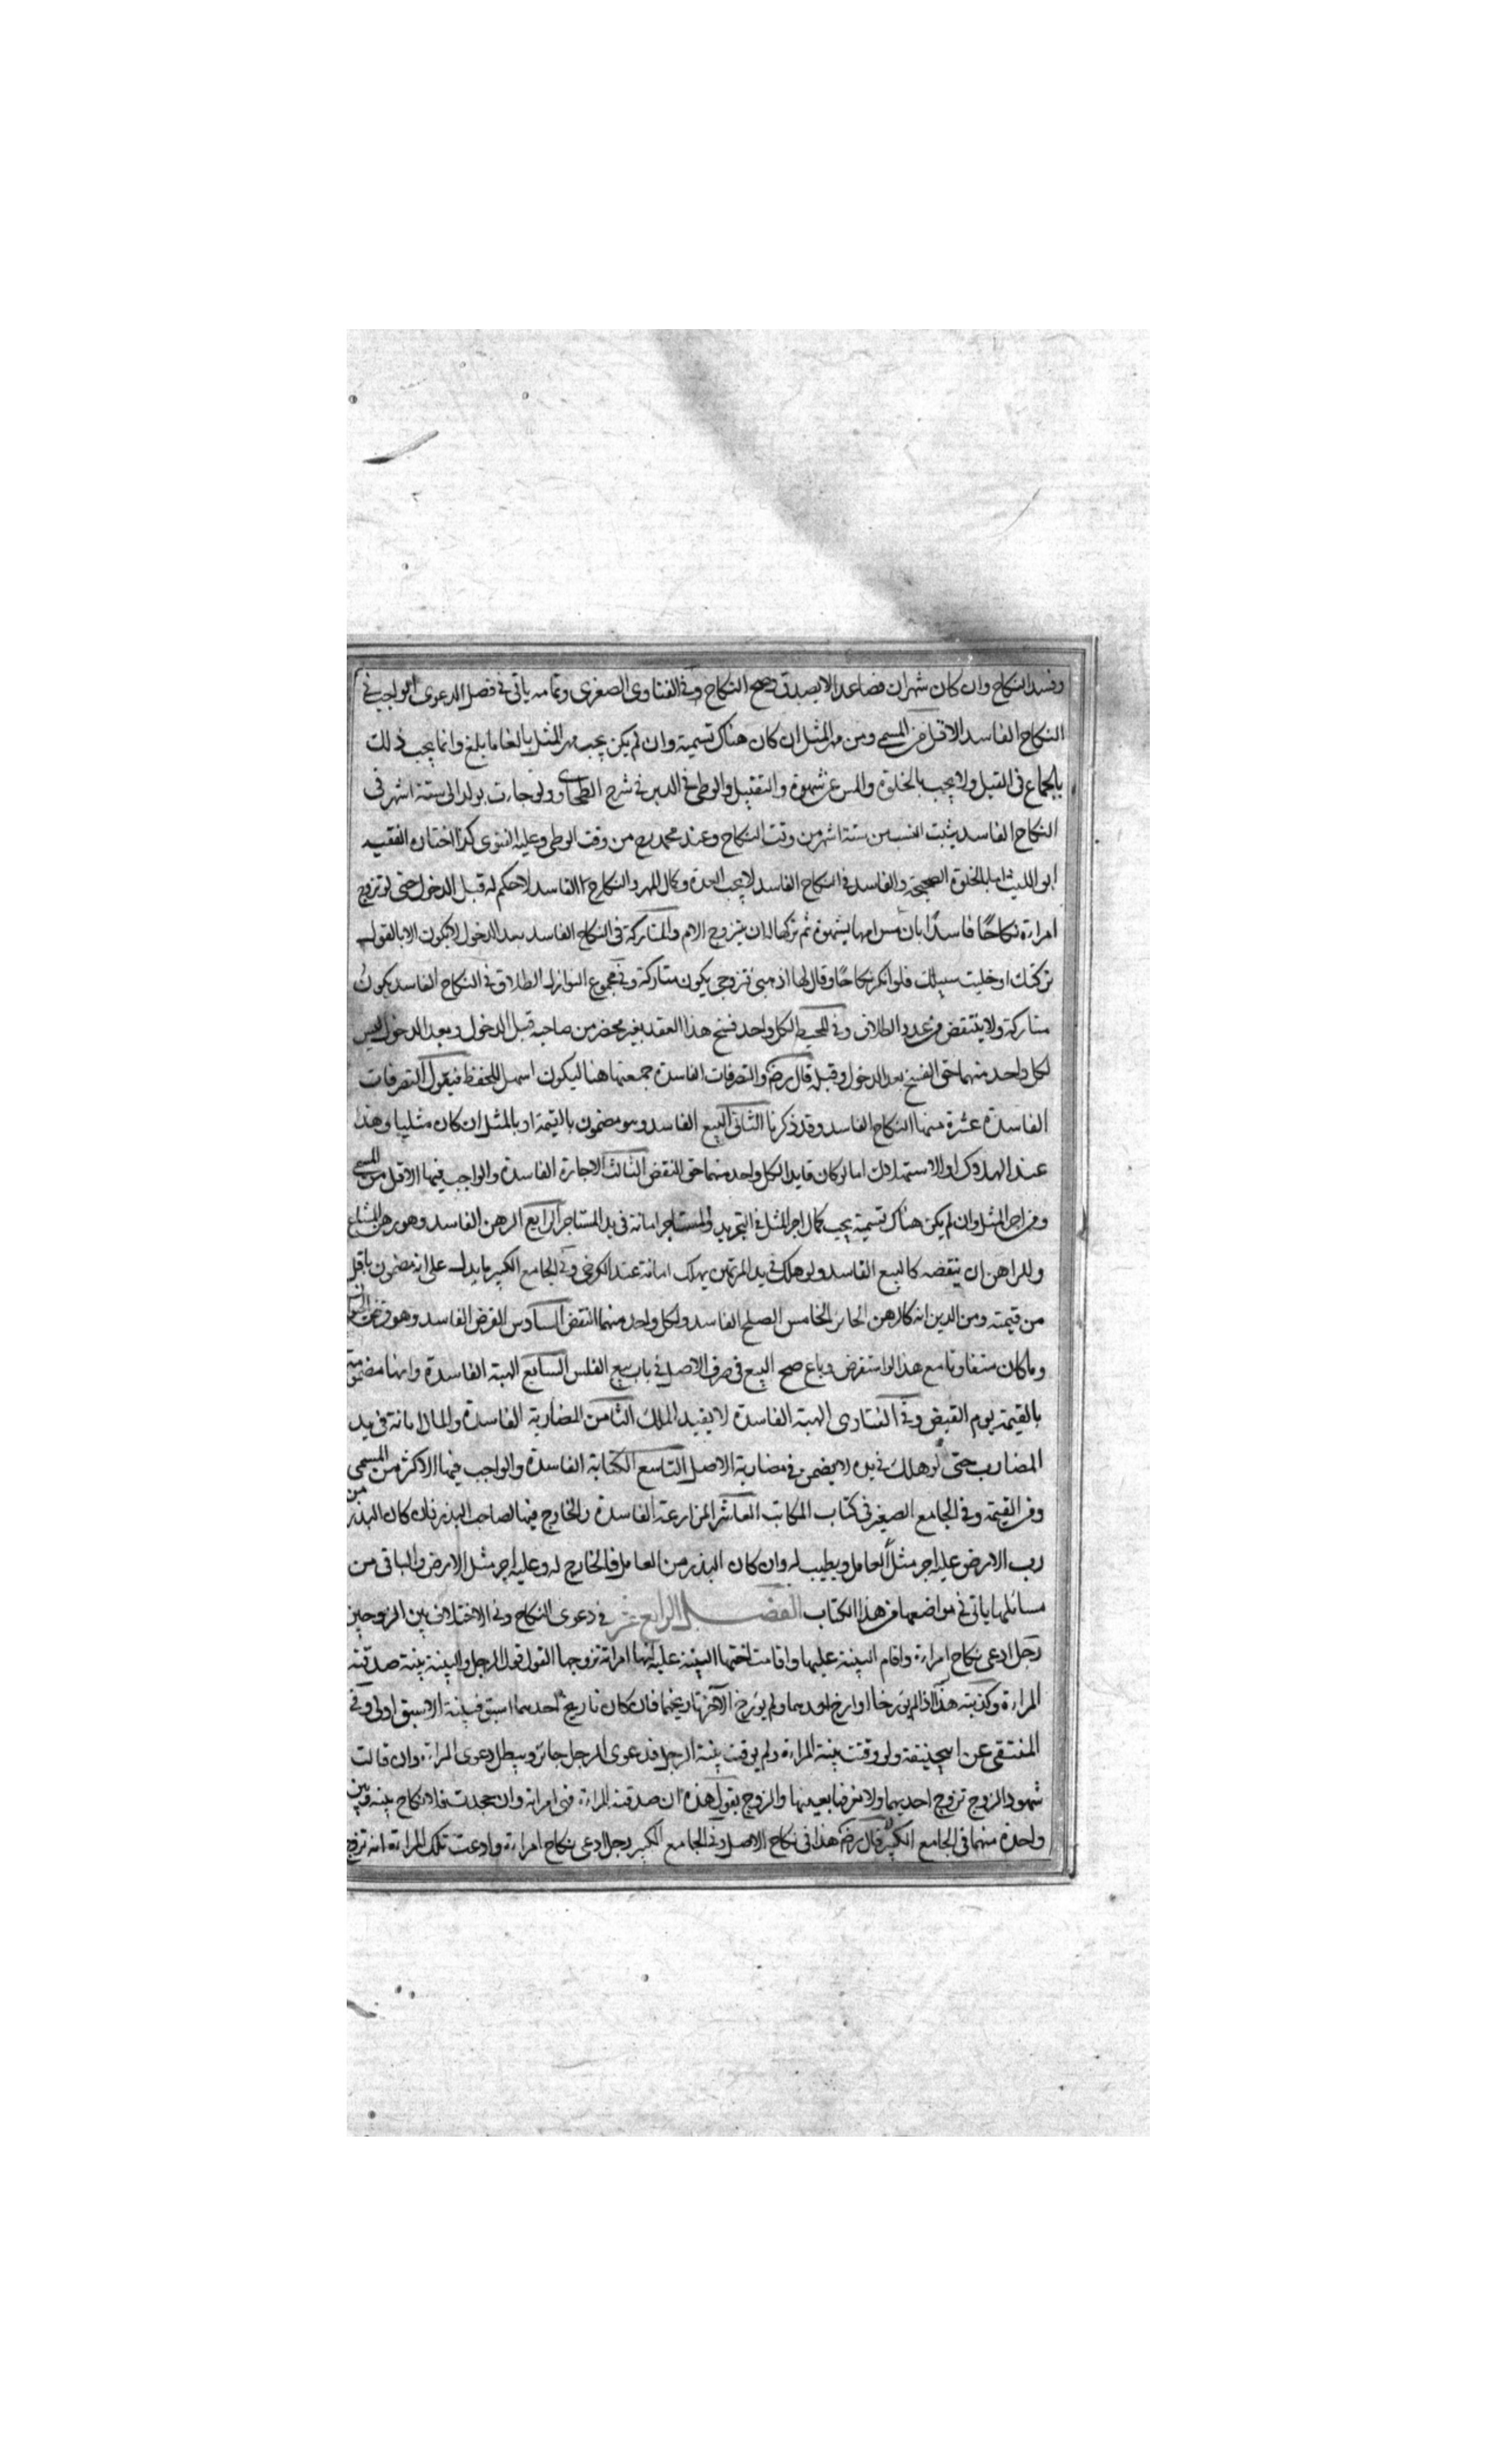 وفسد النكاح وان كان شهران فصاعدا لا يصدق وصح النكاح وفي الفتاوى الصغرى وتمامه ياتي في فصل الدعوى الواجب في
النكاح الفاسد الاقل من المسمى ومن مهر المثل ان كان هناك تسمية وان لم يكن يجب مهر المثل بالغا ما بلغ وانما يجب ذلك
بالجماع في القبل ولا يجب بالخلوة والمس عن شهوة والتقبيل والوطي في الدبر في شرح الطحاوي ولو جاءت بولد الى ستة اشهر في
النكاح الفاسد يثبت النسب من ستة اشهر من وقت النكاح وعند محمد رح من وقت الوطى وعليه الفتوى كذا اختاره الفقيه
ابو الليث اما بالخلوة الصحيحة والفاسدة في النكاح الفاسد لا يجب العدة وكمال المهر والنكاح الفاسد لا حكم له قبل الدخول حتى لو تزوج
امراءة نكاحا فاسدا بان مس امها بشهوة ثم تركها له ان يتزوج الام والمتاركة في النكاح الفاسد بعد الدخول لا يكون الا بالقول
تركتك او خليت سبيلك فلو انكر نكاحا وقال لها اذهبي تزوجي يكون متاركة وفي مجموع النوازل الطلاق في النكاح الفاسد يكون
متاركة ولا ينتقض من عدد الطلاق وفي المحيط لكل واحد فسخ هذا العقد بغير محضر من صاحبه قبل الدخول وبعد الدخول ليس
لكل واحد منهما حق الفسخ بعد الدخول وقبله قال رضه والتصرفات الفاسدة جمعتها هنا ليكون اسهل للحفظ فنقول التصرفات
الفاسدة عشرة منها النكاح الفاسد وقد ذكرنا الثاني البيع الفاسد وهو مضمون بالقيمة او بالمثل ان كان مثليا وهذا
عند الهلاك او الاستهلاك اما لو كان قايما لكل واحد منهما حق النقض الثالث الاجارة الفاسدة والواجب فيها الاقل من المسمى
ومن اجر المثل وان لم يكن هناك تسمية يجب كمال اجر المثل في التجريد والمستاجر امانة في يد المستاجر الرابع الرهن الفاسد وهو رهن المشاع
وللراهن ان ينقضه كالبيع الفاسد ولو هلك في يد المرتهن يهلك امانة عند الكرخي وفي الجامع الكبير ما يدل على انه مضمون باقل
من قيمته ومن الدين انه كالرهن الجائز الخامس الصلح الفاسد ولكل واحد منهما النقض السادس القرض الفاسد وهو قرض
وما كان متفاوتا مع هذا لو استقرض وباع صح البيع في صرف الاصل في باب بيع الفلس السابع الهبة الفاسدة وانها مضمونة
بالقيمة يوم القبض وفي الفتاوى الهبة الفاسدة لا يفيد الملك الثامن المضاربة الفاسدة والمال امانة في يد
المضارب حتى لو هلك في يده لا يضمن في مضاربة الاصل التاسع الكتابة الفاسدة والواجب فيها الاكثر من المسمى
ومن القيمة وفي الجامع الصغير في كتاب المكاتب العاشر المزارعة الفاسدة والخارج فيها لصاحب البذر فان كان البذر من
رب الارض عليه اجر مثل العامل ويطيب له وان كان البذر من العامل فالخارج له وعليه اجر مثل الارض والباقي من
مسائلها ياتي في مواضعها من هذا الكتاب الفصل الرابع عشر في دعوى النكاح وفي الاختلاف بين الزوجين
رجل ادعى نكاح امراءة واقام البينة عليها واقامت اختها البينة عليه انها امراته تزوجها القول قول الرجل والبينة بينة صدقته
المراءة وكذبته هذا اذا لم يؤرخا او ارخ احدهما ولم يؤرخ الآخر تاريخهما فان كان تاريخ احدهما اسبق فبينة الاسبق اولى وفي
المنتقى عن ابي حنيفة ولو وقتت بينة المراءة ولم يوقت بينة الرجل فدعوى الرجل جائز ويبطل دعوى المراءة وان قالت
شهود الزوج تزوج احديهما ولا نعرفها بعينها والزوج يقول هذه ان صدقته المراءة فهي امراته وان جحدت فلا نكاح بينه وبين
واحدة منهما في الجامع الكبير قال رضه هذا في نكاح الاصل وفي الجامع الكبير رجل ادعى نكاح امراءة وادعت تلك المراءة انه تزوج